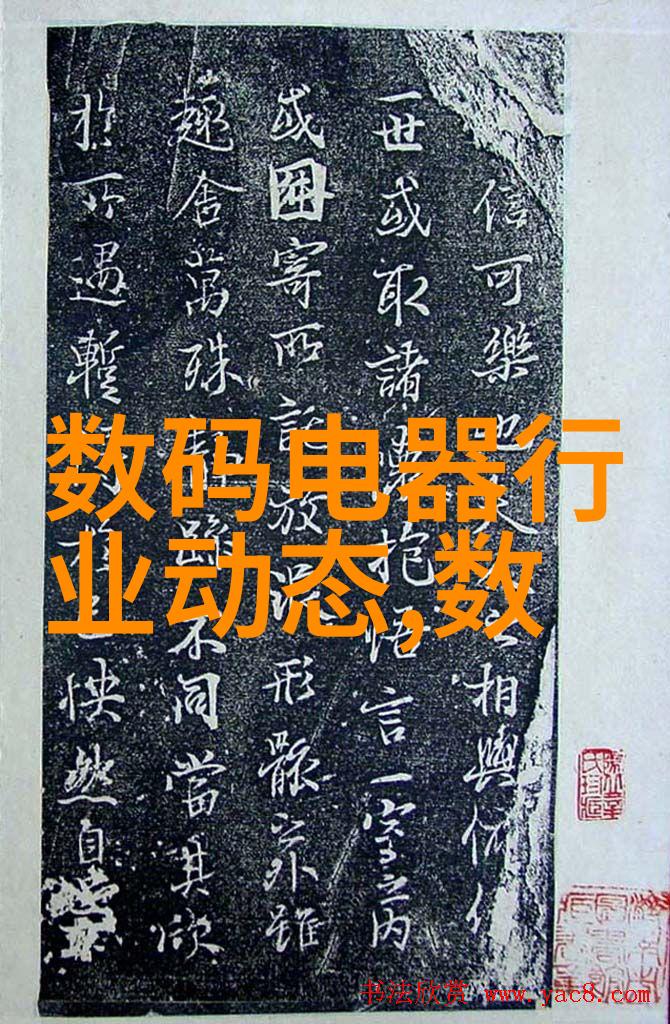 信可樂也夫人之相與俯仰
一世或取諸懷抱悟言一室之內
或因寄所託放浪形骸之外雖
趣舍萬殊靜躁不同當其欣
於所遇暫得於己怏然自
数码电器行
业动态,数
书法欣赏 www.yac8.com